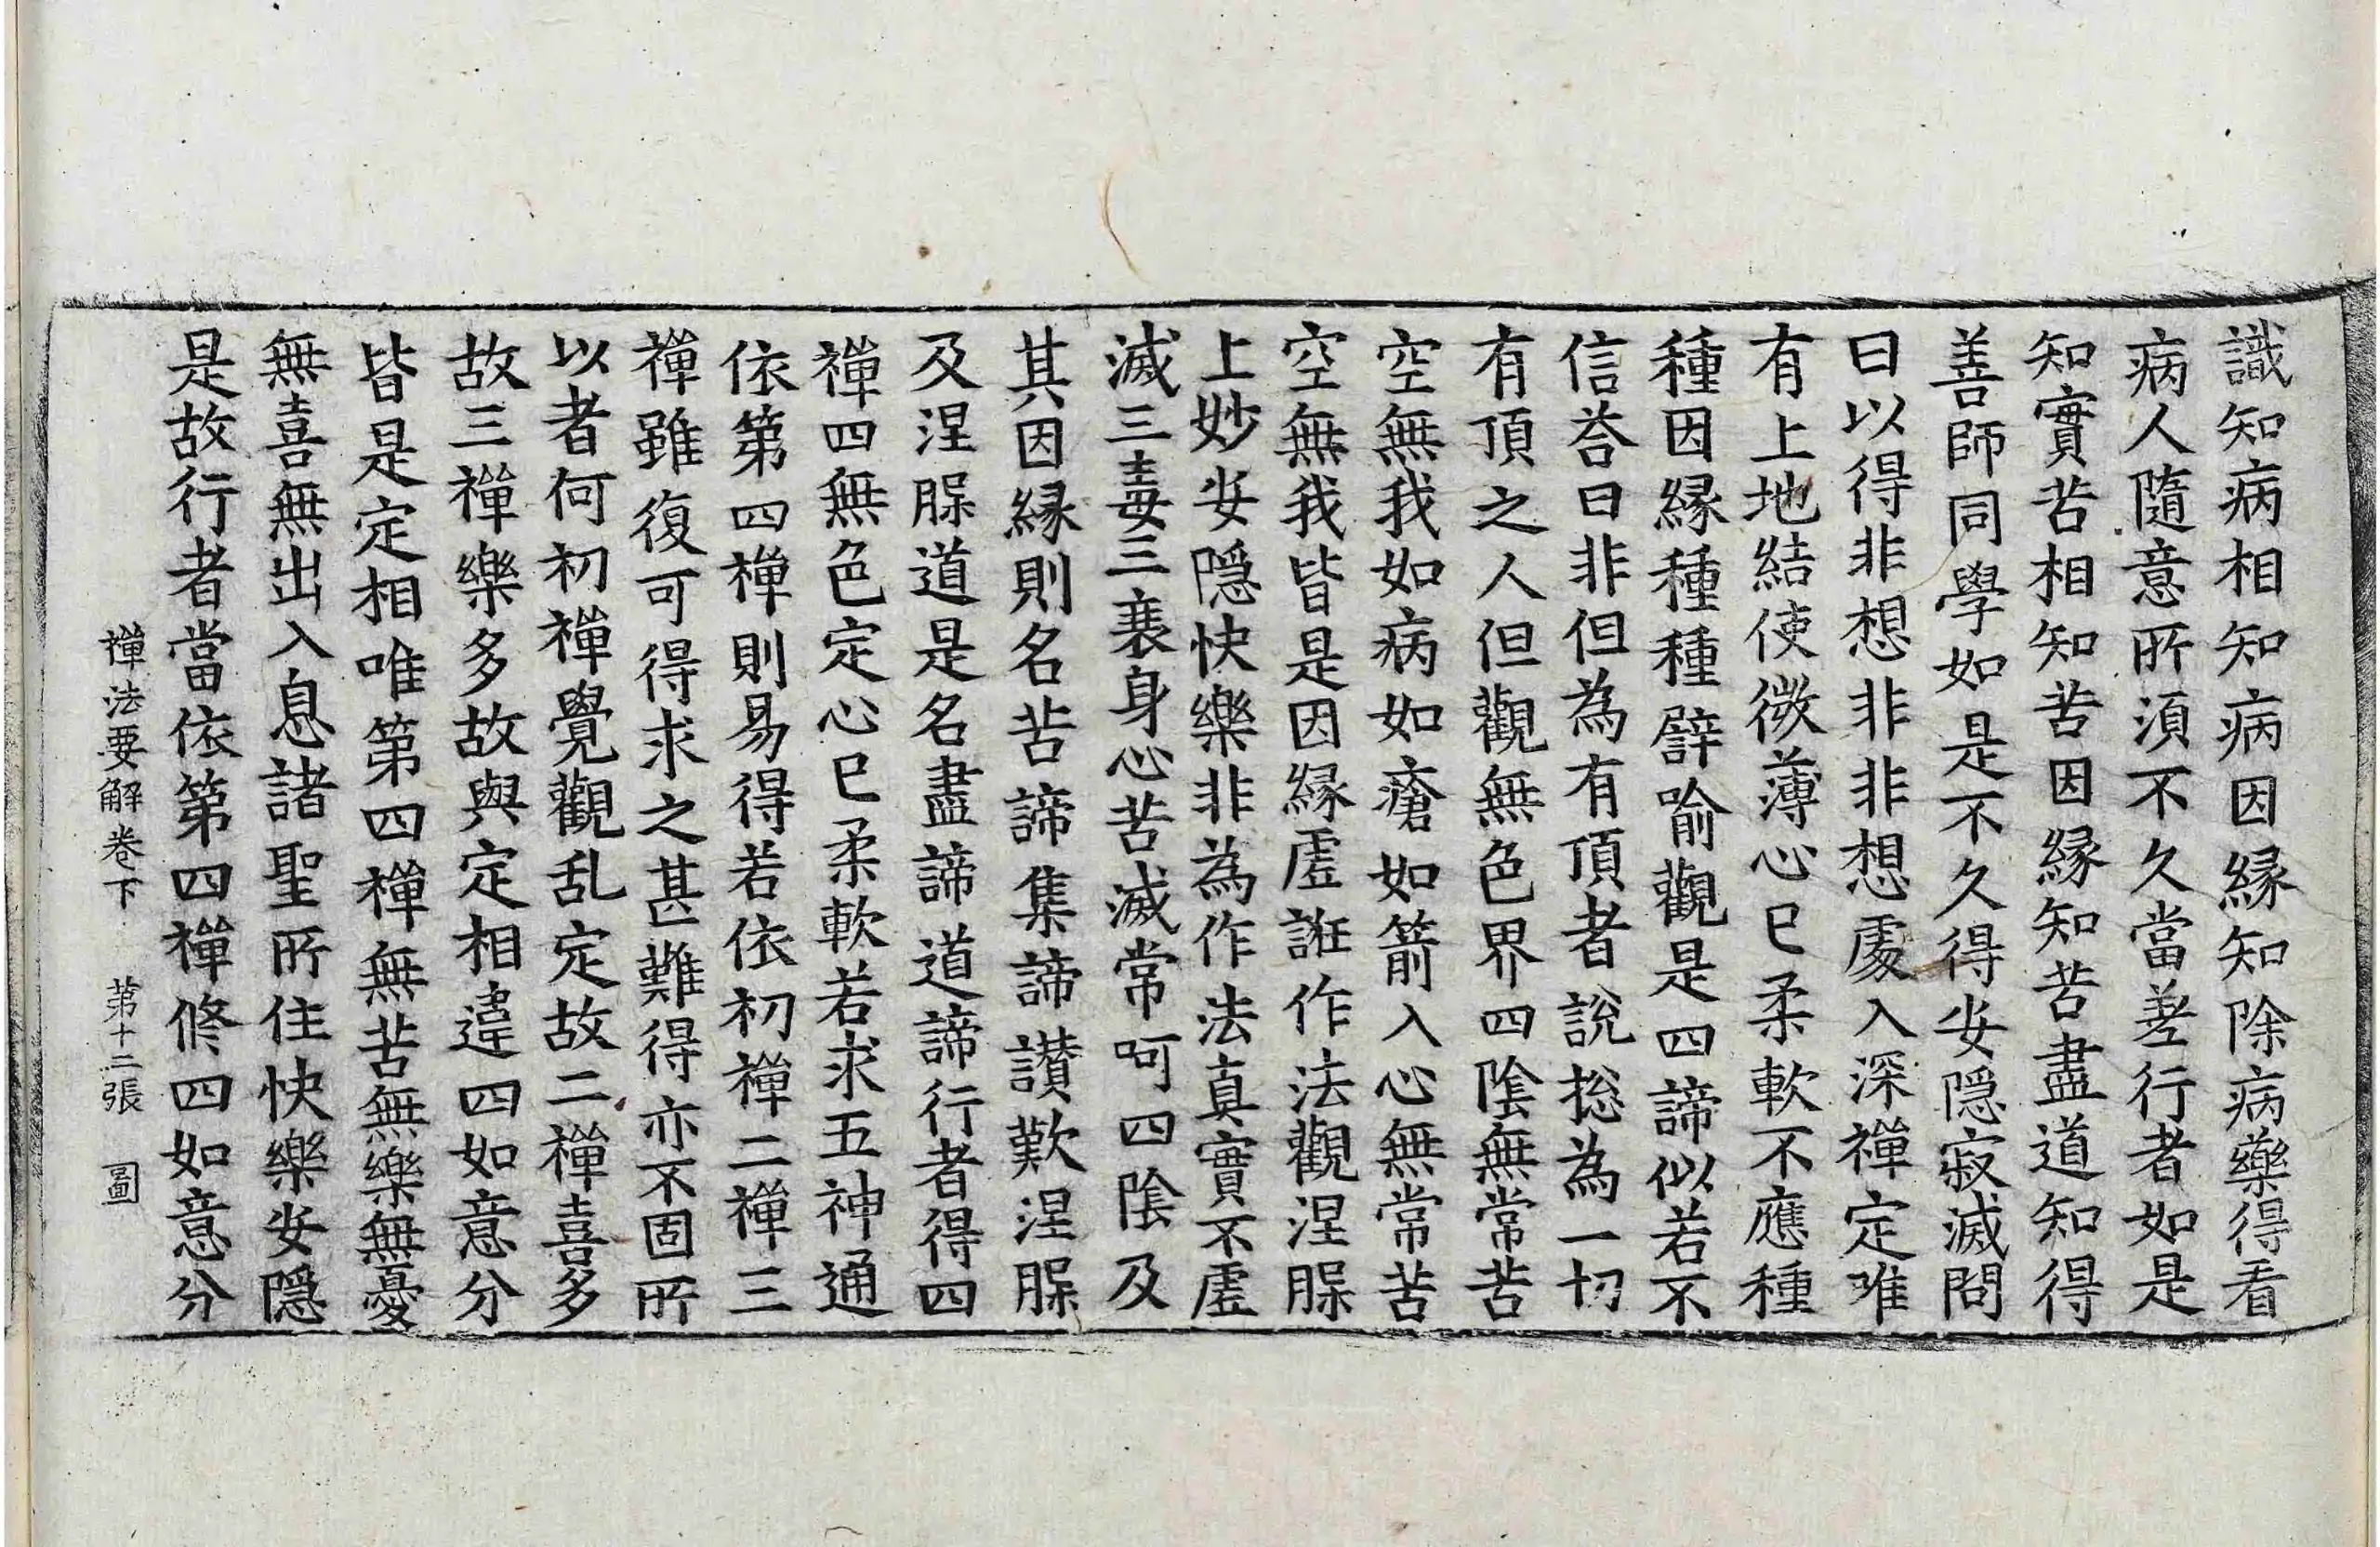 識知病相知病因縁知除病藥得看
病人隨意所湏不久當差行者如是
知實苦相知苦因縁知苦盡道知得
善師同學如是不久得安隱寂滅問
曰以得非想非非想處入深禪定唯
有上地結使微薄心已柔軟不應種
種因縁種種譬喻觀是四諦似若不
信荅曰非但為有頂者說捴為一切
有頂之人但觀無色界四陰無常苦
空無我如病如瘡如箭入心無常苦
空無我皆是因縁虛誑作法觀涅槃
上妙安隱快樂非為作法真實不虛
滅三毒三衰身心苦滅常呵四陰及
其因縁則名苦諦集諦讃歎涅槃
及涅槃道是名盡諦道諦行者得四
禪四無色定心已柔軟若求五神通
依第四禪則易得若依初禪二禪三
禪雖復可得求之甚難得亦不固所
以者何初禪覺觀乱定故二禪喜多
故三禪樂多故與定相違四如意分
皆是定相唯第四禪無苦無樂無憂
無喜無出入息諸聖所住快樂安隱
是故行者當依第四禪修四如意分
禪法要解卷下 第十二張 圖